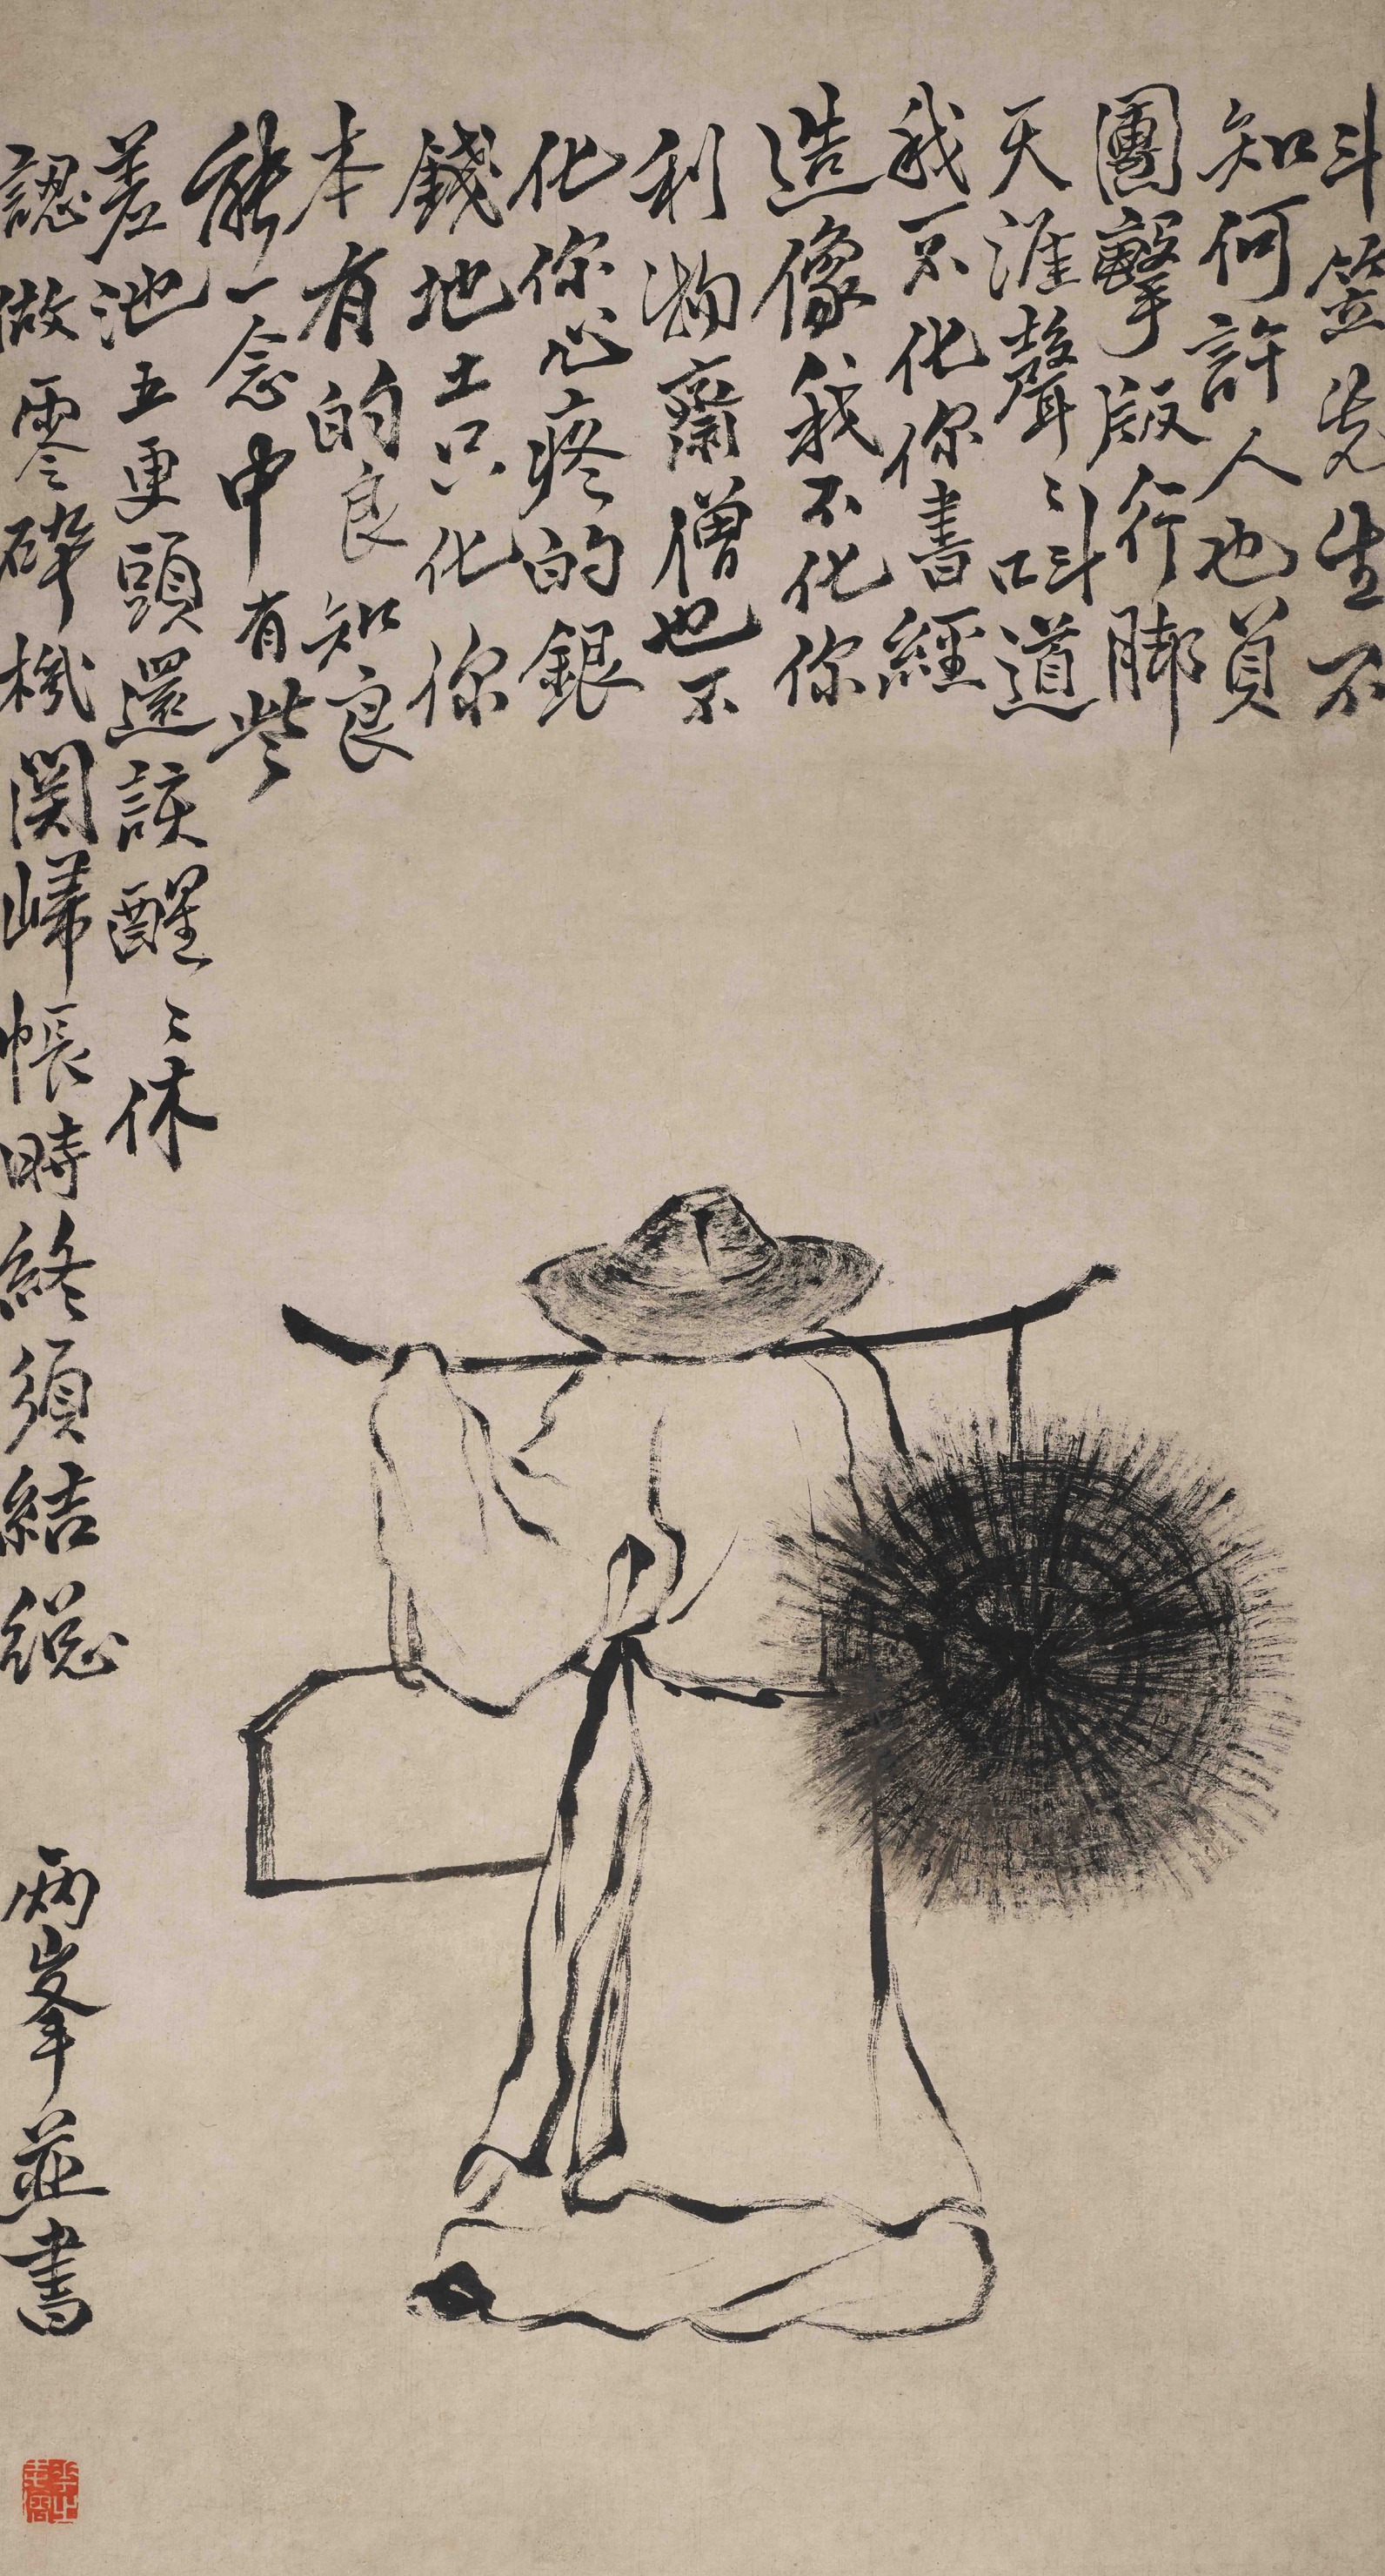 斗笠先生不
知何許人也負
團擊版行脚
天涯聲〻叫道
我不化你書經
造像我不化你
利物齋僧也不
化你心疼的銀
錢地土只化你
本有的良知良
能一念中有些
差池五更頭還該醒〻休
認做零碎機関歸帳時終須結總
兩峯並書